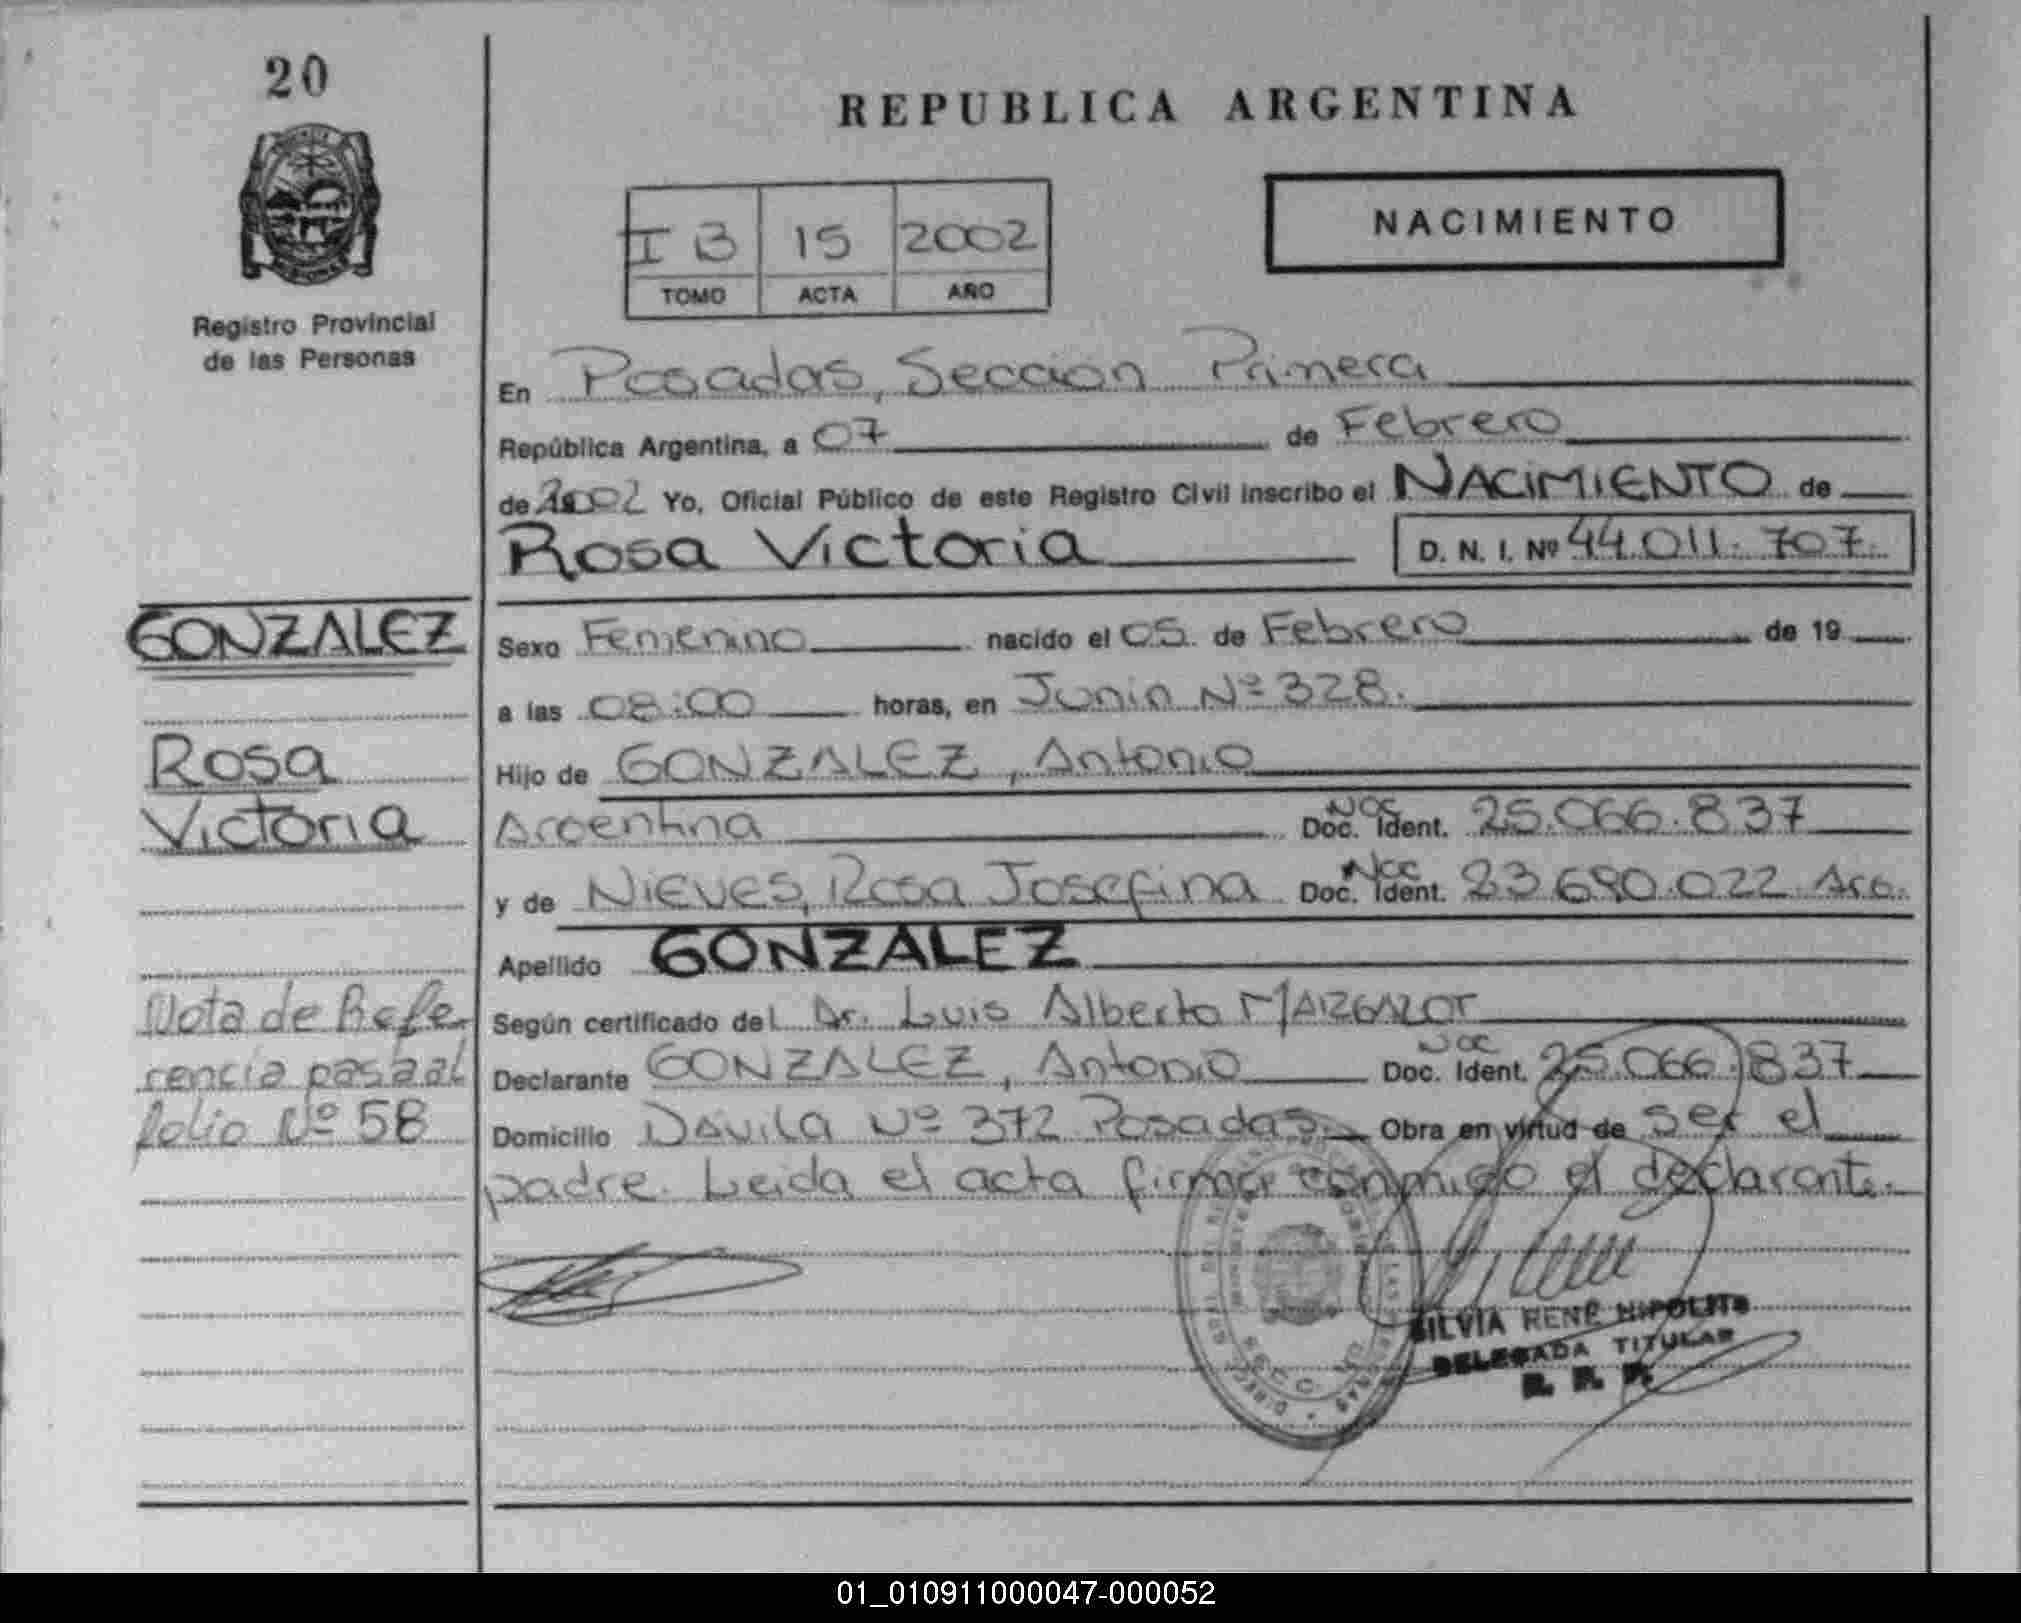 20
Registro Provincial
de las Personas
REPUBLICA ARGENTINA
I B 15 2002
TOMO ACTA AÑO
NACIMIENTO
En Posadas, Sección Primera
República Argentina, a 07 de Febrero
de 2002 Yo, Oficial Público de este Registro Civil inscribo el NACIMIENTO de
Rosa Victoria D. N. I. Nº 44.011.707.
GONZALEZ
Rosa
Victoria
Nota de Refe
rencia pasa al
folio Nº 58
Sexo Femenino nacido el 05 de Febrero de 19
a las 08:00 horas, en Junin Nº 328.
Hijo de GONZALEZ, Antonio
Argentina Doc. Ident. 25.066.837
y de NIEVES, Rosa Josefina Doc. Ident. 23.690.022 Arg.
Apellido GONZALEZ
Según certificado del Dr. Luis Alberto
Declarante GONZALEZ, Antonio Doc. Ident. 25.066.837
Domicilio Davila Nº 372 Posadas. Obra en virtud de ser el
padre. Leida el acta firma conmigo el declarante.
SILVIA RENE HIPOLITO
DELEGADA TITULAR
R. P. P.
01_010911000047-000052